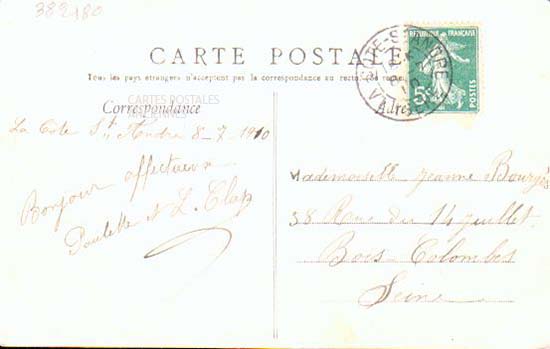 382180
CARTE POSTALE
Tous les pays étrangers n'acceptent pas la correspondance au recto
CARTES POSTALES
ANCIENNES
Correspondance
La Côte St André 8-7-1910
Bonjour affectueux
Paulette et L.
RÉPUBLIQUE FRANÇAISE
5c
Mademoiselle Jeanne Bourgès
38 Rue du 14 juillet
Bois-Colombes
Seine